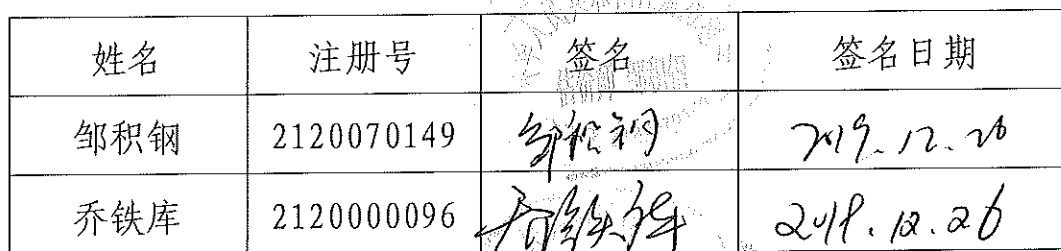 姓名 注册号 签名 签名日期
邹积钢 2120070149 邹积钢 2019.12.26
乔铁库 2120000096 乔铁库 2019.12.26